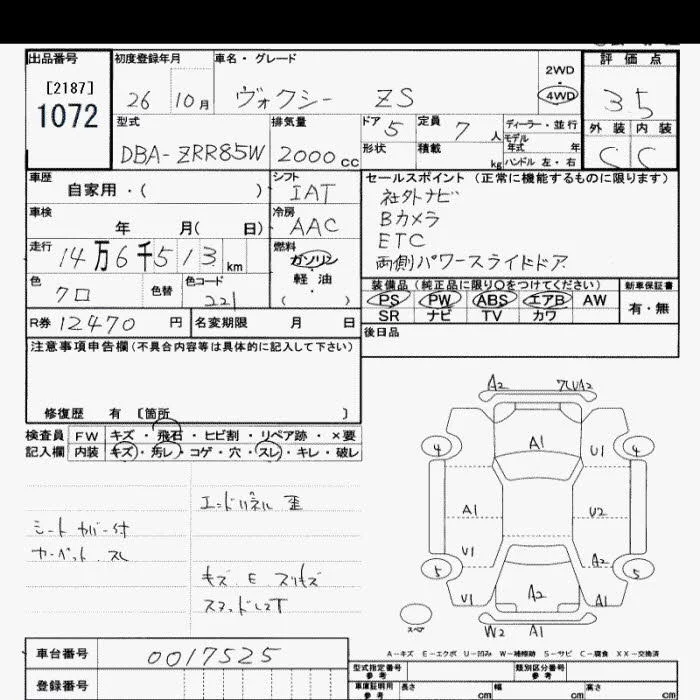 出品番号 初度登録年月 車名・グレード 評価点
[2187] 2WD
1072 26 10月 ヴォクシー ZS ・ 4WD 35
型式 排気量 ドア 5 定員 7人 ディーラー・並行 外装 内装
DBA-ZRR85W 2000cc 形状 積載 kg モデル年式 年 ハンドル 左・右 C C
車歴 自家用・( ) シフト IAT
セールスポイント (正常に機能するものに限ります)
社外ナビ
Bカメラ
ETC
両側パワースライドドア
車検 年 月( 日) 冷房 AAC
走行 14万6千513km 燃料 ガソリン・軽油 ( )
色 クロ 色替 色コード 221
装備品(純正品に限り○をつけてください) 新車保証書
PS PW ABS エアB AW 有・無
SR ナビ TV カワ
R券 12470円 名変期限 月 日 後日品
注意事項申告欄(不具合内容等は具体的に記入して下さい)
修復歴 有 [箇所 ]
検査員 FW キズ・飛石・ヒビ割・リペア跡・×要
記入欄 内装 キズ・汚レ・コゲ・穴・スレ・キレ・破レ
エンドパネル 歪
シートカバー付
カーペット スレ
キズ E スリキズ
A2 A2
4 A1 U1 4
A1 U2
U1 A2
5 5
U1 A2 A1
スペア W2 A1
A-キズ E-エクボ U-凹み W-補修跡 S-サビ C-腐食 XX-交換済
車台番号 0017525
登録番号
型式指定番号 参考 類別区分番号 参考
車庫証明用 参考 長さ cm 幅 cm 高さ cm